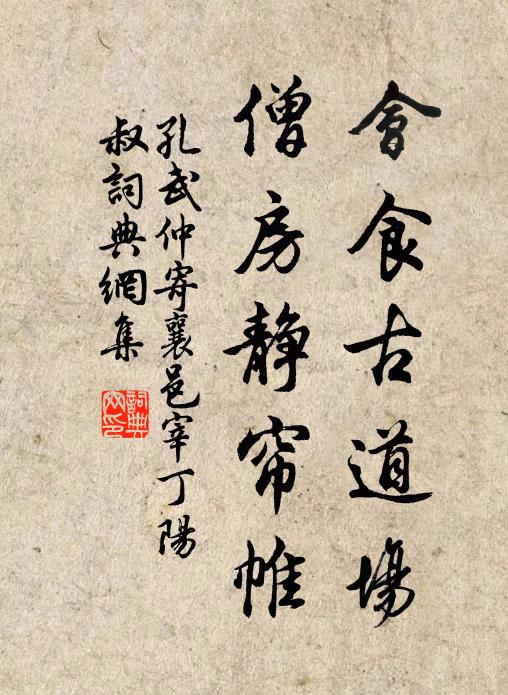 會食古道場
僧房静帘帷
孔武仲寄襄邑宰丁陽
叔詞典網集
詞典网印